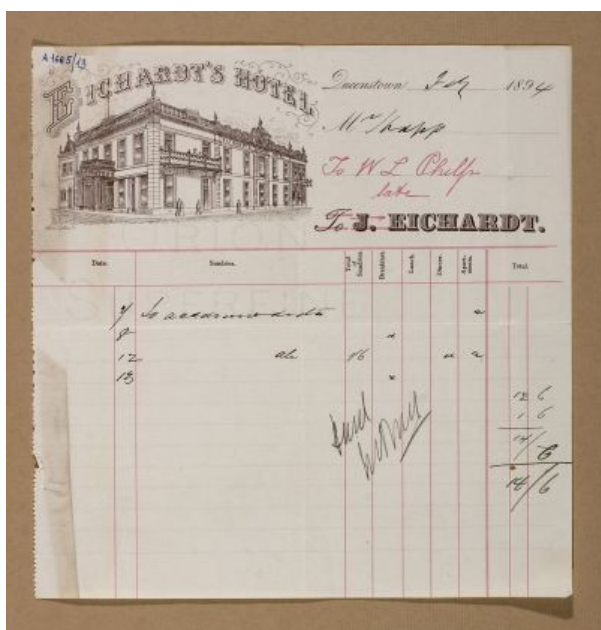 A 1605/13
EICHARDT'S HOTEL
Queenstown Feb 1894
Mr Knapp
To W L Phelps
late
To J. EICHARDT.
Date. Sundries. Total of Sundries Breakfast Lunch Dinner Apartments. Total.
7 To accommodation "
8 "
12 ale 1/6 " "
13 "
12 6
1 6
14/6
14/6
Paid